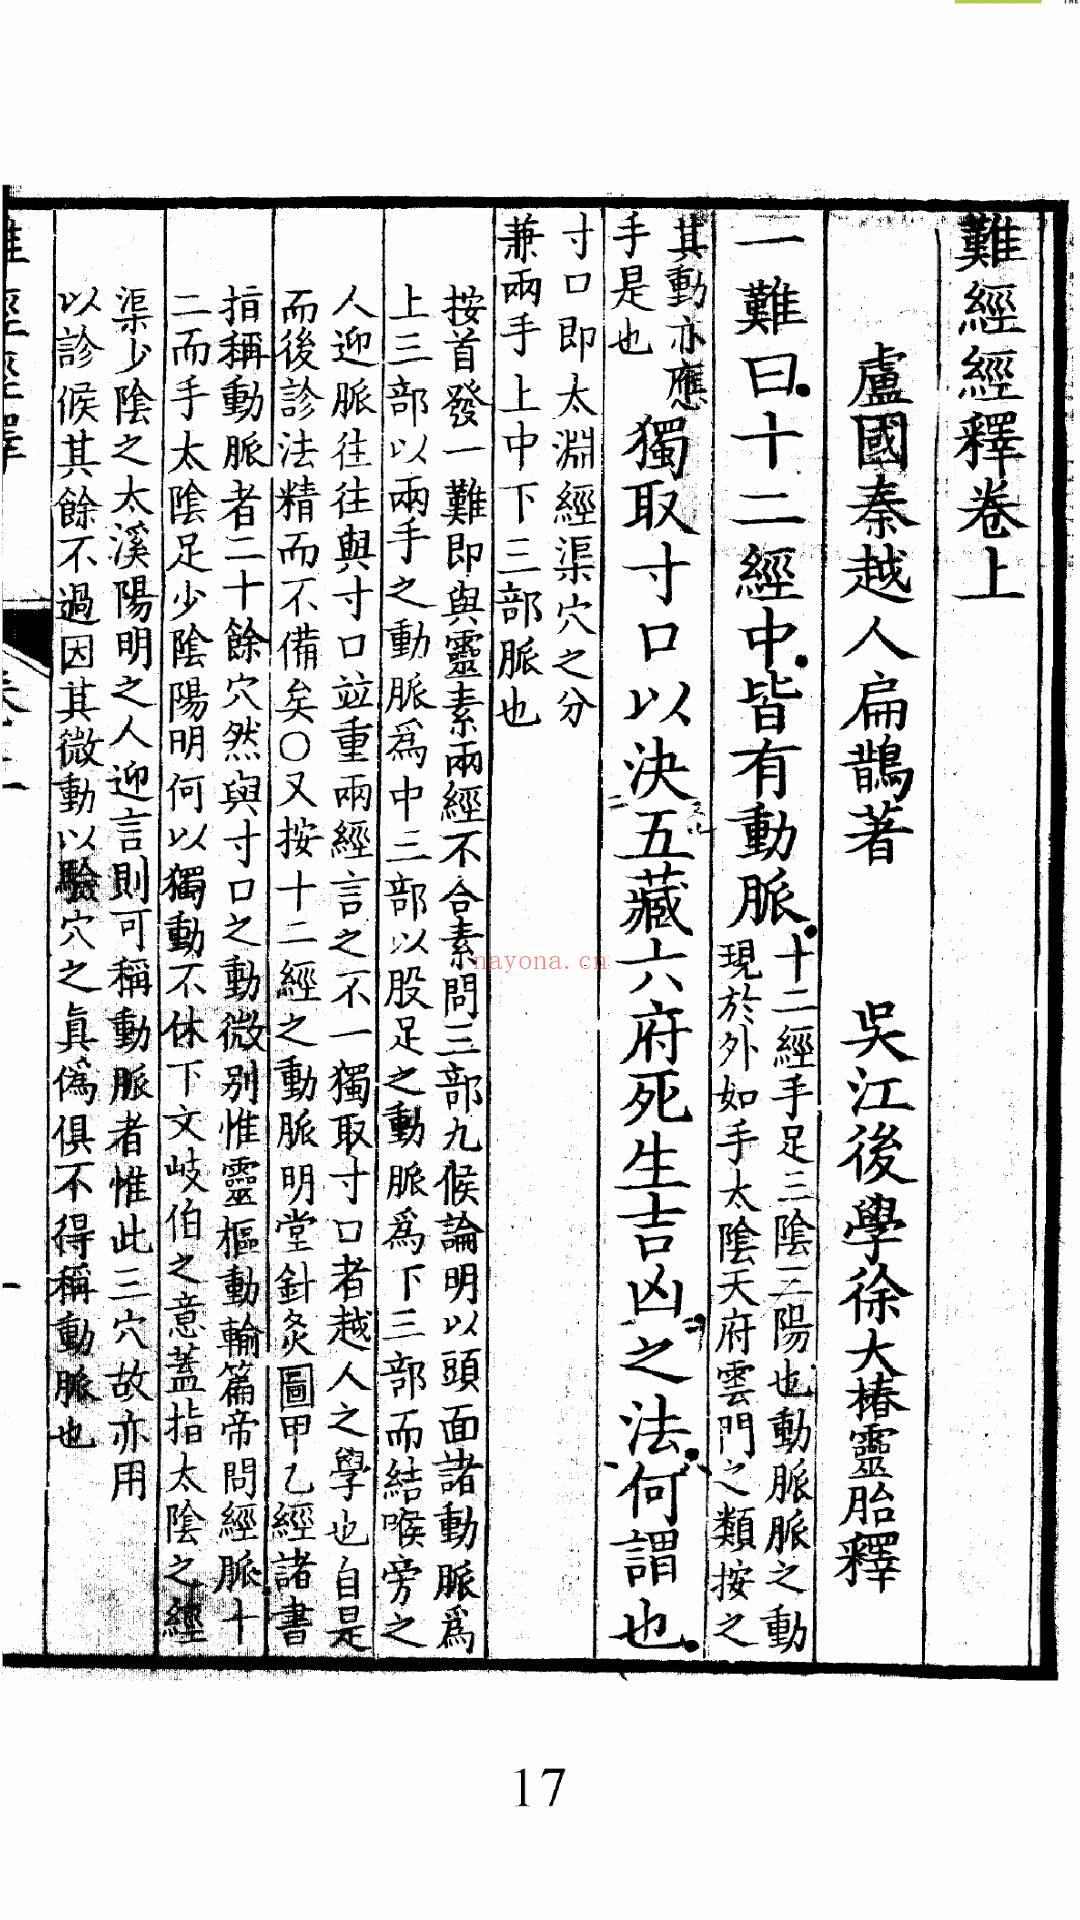 難經經釋卷上
盧國秦越人扁鵲著　吳江後學徐大椿靈胎釋
一難曰十二經中皆有動脈
十二經手足三陰三陽也動脈脈之動
現於外如手太陰天府雲門之類按之
其動亦應
手是也
獨取寸口以決五藏六府死生吉凶之法何謂也
寸口即太淵經渠穴之分
兼兩手上中下三部脈也
按首發一難即與靈素兩經不合素問三部九候論明以頭面諸動脈爲
上三部以兩手之動脈爲中三部以股足之動脈爲下三部而結喉旁之
人迎脈往往與寸口竝重兩經言之不一獨取寸口者越人之學也自是
而後診法精而不備矣〇又按十二經之動脈明堂針灸圖甲乙經諸書
指稱動脈者二十餘穴然與寸口之動微別惟靈樞動輸篇帝問經脈十
二而手太陰足少陰陽明何以獨動不休下文岐伯之意蓋指太陰之經
渠少陰之太溪陽明之人迎言則可稱動脈者惟此三穴故亦用
以診候其餘不過因其微動以驗穴之眞僞俱不得稱動脈也
nayona.cn
17